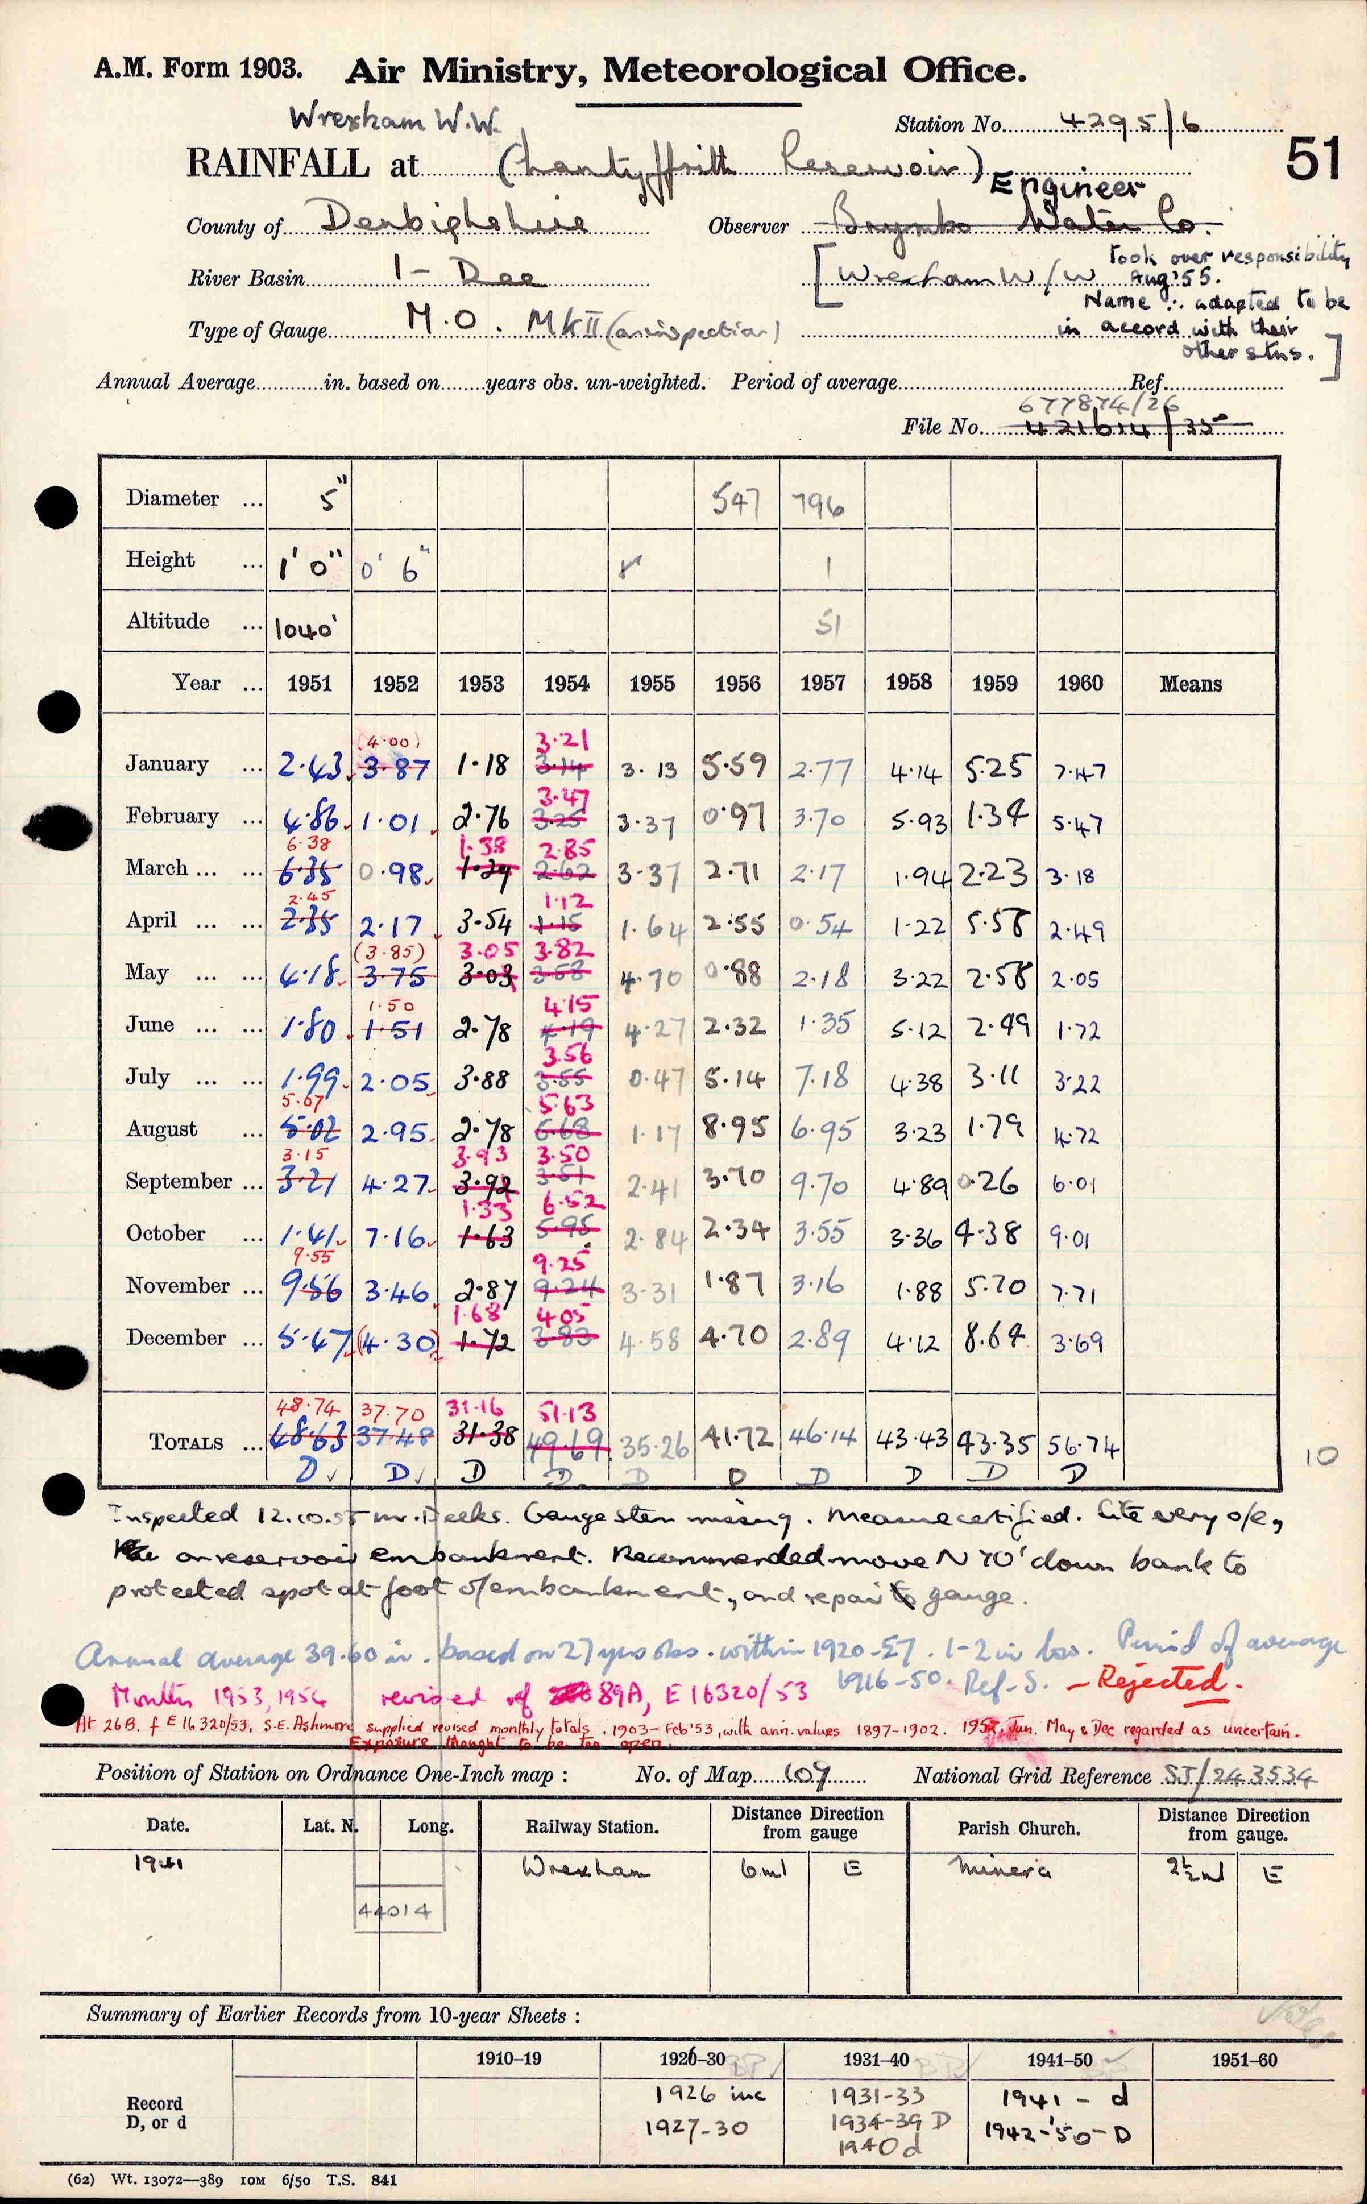 A.M. Form 1903. Air Ministry, Meteorological Office.
Wrexham W.W.
Station No. 4295/6
51
RAINFALL at (Llantyffrith Reservoir)
Engineer
County of Denbighshire Observer Brymbo Water Co.
River Basin 1 - Dee [Wrexham W/W took over responsibility Aug '55.
Name ∴ adapted to be
Type of Gauge M.O. Mk II (on inspection) in accord with their
other stns.]
Annual Average in. based on years obs. un-weighted. Period of average Ref.
677874/26
File No. 421614/35
Diameter ... 5" 547 796
Height ... 1' 0" 0' 6" 1
Altitude ... 1040' 51
Year ... 1951 1952 1953 1954 1955 1956 1957 1958 1959 1960 Means
(4.00) 3.21
January ... 2.43 3.87 1.18 3.14 3.13 5.59 2.77 4.14 5.25 7.47
3.47
February ... 4.86 1.01 2.76 3.25 3.37 0.97 3.70 5.93 1.34 5.47
6.38 1.38 2.85
March ... ... 6.35 0.98 1.29 2.62 3.37 2.71 2.17 1.94 2.23 3.18
2.45 1.12
April ... ... 2.35 2.17 3.54 1.15 1.64 2.55 0.54 1.22 5.58 2.49
(3.85) 3.05 3.82
May ... ... 4.18 3.75 3.03 3.58 4.70 0.88 2.18 3.22 2.58 2.05
1.50 4.15
June ... ... 1.80 1.51 2.78 4.19 4.27 2.32 1.35 5.12 2.49 1.72
3.56
July ... ... 1.99 2.05 3.88 3.55 0.47 5.14 7.18 4.38 3.11 3.22
5.07 5.63
August ... 5.02 2.95 2.78 5.68 1.17 8.95 6.95 3.23 1.79 4.72
3.15 3.93 3.50
September ... 3.21 4.27 3.92 3.51 2.41 3.70 9.70 4.89 0.26 6.01
1.33 6.52
October ... 1.41 7.16 1.63 5.95 2.84 2.34 3.55 3.36 4.38 9.01
9.55 9.25
November ... 9.56 3.46 2.87 9.24 3.31 1.87 3.16 1.88 5.70 7.71
1.68 4.05
December ... 5.47 (4.30) 1.72 3.83 4.58 4.70 2.89 4.12 8.64 3.69
48.74 37.70 31.16 51.13
TOTALS ... 48.63 37.48 31.38 49.69 35.26 41.72 46.14 43.43 43.35 56.74 10
D D D D D D D D D D
Inspected 12.10.55 Mr. Deeks. Gauge stem missing. Measure certified. Site very o/e,
on reservoir embankment. Recommended move N 70' down bank to
protected spot at foot of embankment, and repair to gauge.
Annual average 39.60 in. based on 27 yrs obs. within 1920-57. 1-2 in low. Period of average
1916-50. Ref-S. - Rejected.
Months 1953, 1954 revised ref 89A, E16320/53
At 26B. f E16320/53, S.E. Ashmore supplied revised monthly totals. 1903-Feb '53, with ann. values 1897-1902. 1952 Jan. May & Dec regarded as uncertain.
Exposure thought to be too open.
Position of Station on Ordnance One-Inch map : No. of Map 109 National Grid Reference SJ/243534
Date. Lat. N. Long. Railway Station. Distance from gauge Direction Parish Church. Distance from gauge. Direction
1941 Wrexham 6 ml E Minera 2½ ml E
44014
Summary of Earlier Records from 10-year Sheets :
1910–19 1926–30 1931–40 1941–50 1951–60
Record D, or d
1926 inc 1931-33 1941 - d
1927-30 1934-39 D 1942-'50-D
1940 d
(62) Wt. 13072—389 10M 6/50 T.S. 841